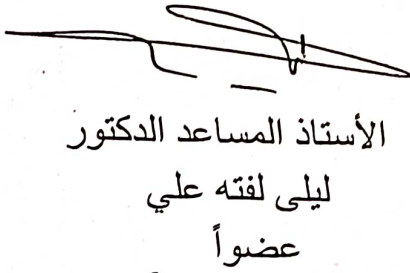 الأستاذ المساعد الدكتور
ليلى لفته علي
عضواً